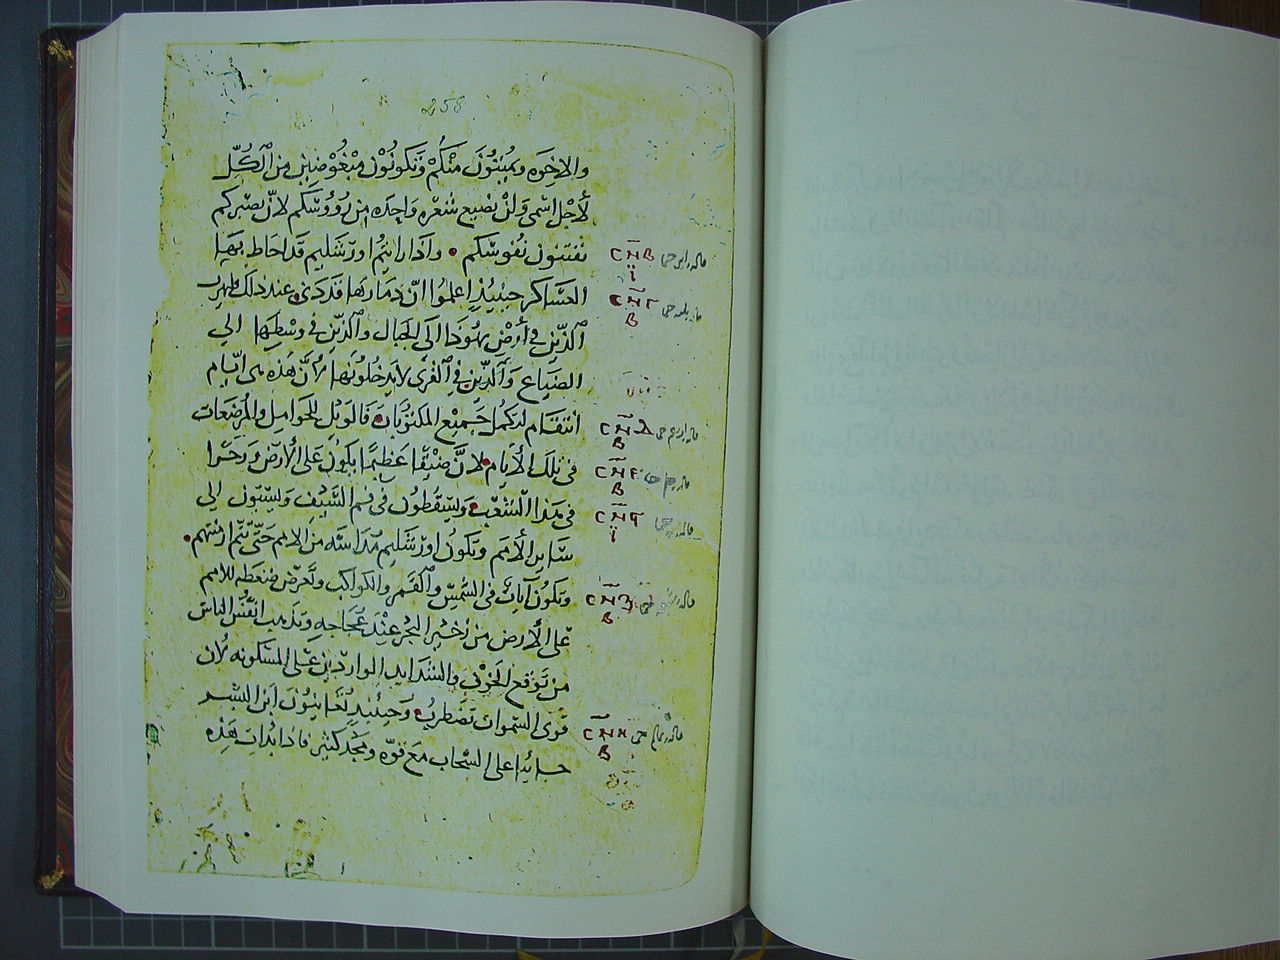 258
والاخوه ويميتون منكم وتكونون مبغوضين من الكل
لأجل اسمي ولن يضيع شعره واحده من رؤوسكم لان بصبركم
تقتنون نفوسكم • واذا رايتم اورشليم قد احاط بها
العساكر حينيذ اعلموا ان دمارها قد دنى وعند ذلك فليهرب
الذين في أرض يهودا الى الجبال والذين في وسطها الي
الضياع والذين في القرى لا يدخلونها لان هذه هي ايام
انتقام لتكمل جميع المكتوبات فالويل للحوامل والمرضعات
في تلك الأيام لان ضيقا عظيما يكون على الأرض ورجزا
في هذا الشعب ويسقطون في فم السيف ويسبون الي
ساير الأمم وتكون اورشليم مداسه من الامم حتى تتم ازمنتهم •
وتكون آيات في الشمس والقمر والكواكب وتعرض ضغطه للامم
على الأرض من تحير البحر عند عجاجه وتذهب انفس الناس
من توقع الخوف والشدايد الواردين على المسكونه لان
قوى السموات تضطرب وحينيذ تعاينون ابن البشر
جائيا على السحاب مع قوه ومجد كثير فاذا بدات هذه